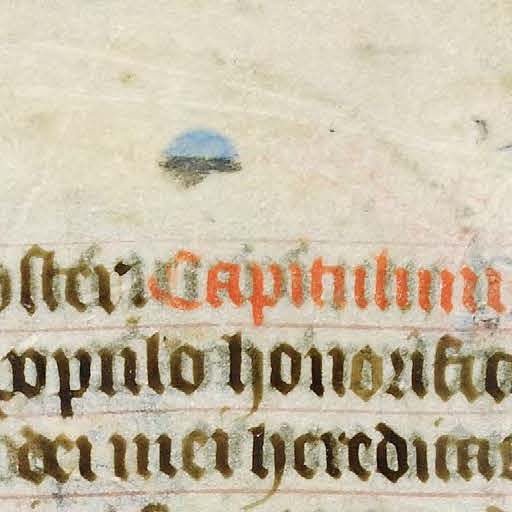 oster Capitulum
populo honorific
dei mei heredita